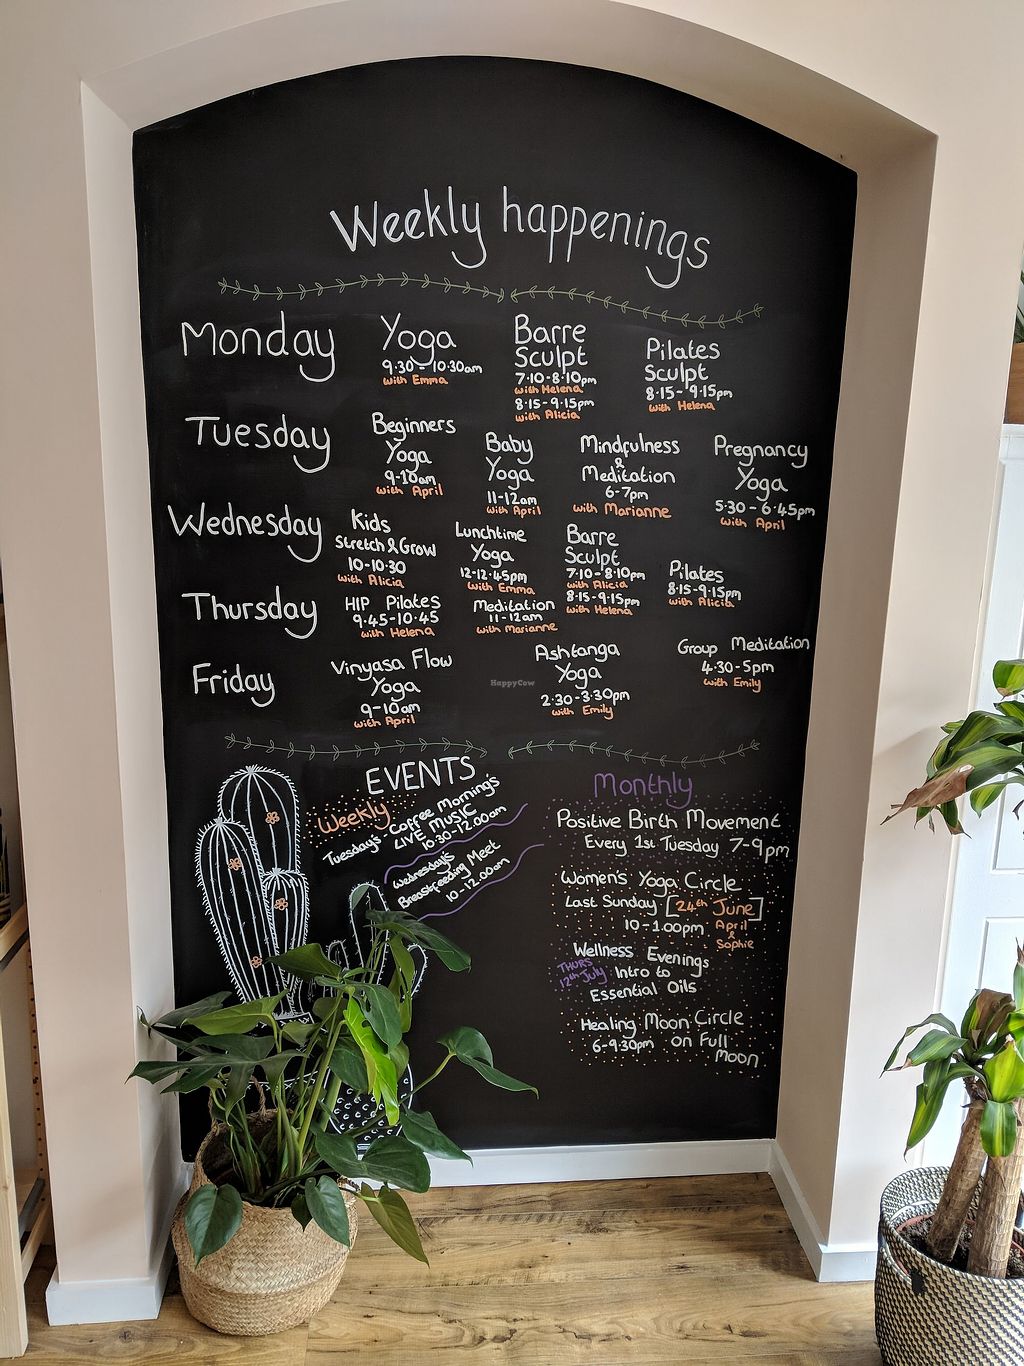 Weekly happenings
Monday
Yoga
9.30 - 10.30am
with Emma
Barre
Sculpt
7.10-8.10pm
with Helena
8.15-9.15pm
with Alicia
Pilates
Sculpt
8.15-9.15pm
with Helena
Tuesday
Beginners
Yoga
9-10am
with April
Baby
Yoga
11-12am
with April
Mindfulness
&
Meditation
6-7pm
with Marianne
Pregnancy
Yoga
5.30 - 6.45pm
with April
Wednesday
Kids
Stretch & Grow
10-10.30
with Alicia
Lunchtime
Yoga
12-12.45pm
with Emma
Barre
Sculpt
7.10-8.10pm
with Alicia
8.15-9.15pm
with Helena
Pilates
8.15-9.15pm
with Alicia
Thursday
HIP Pilates
9.45-10.45
with Helena
Meditation
11-12am
with Marianne
Friday
Vinyasa Flow
Yoga
9-10am
with April
Ashtanga
Yoga
2.30-3.30pm
with Emily
Group Meditation
4.30-5pm
with Emily
HappyCow
EVENTS
Weekly
Tuesday's Coffee Morning's
LIVE MUSIC
10.30-12.00am
Wednesday's
Breastfeeding Meet
10-12.00am
Monthly
Positive Birth Movement
Every 1st Tuesday 7-9pm
Women's Yoga Circle
Last Sunday [24th June]
10-1.00pm April
&
Sophie
Wellness Evenings
THURS
12th July Intro to
Essential Oils
Healing Moon Circle
6-9.30pm on Full
Moon